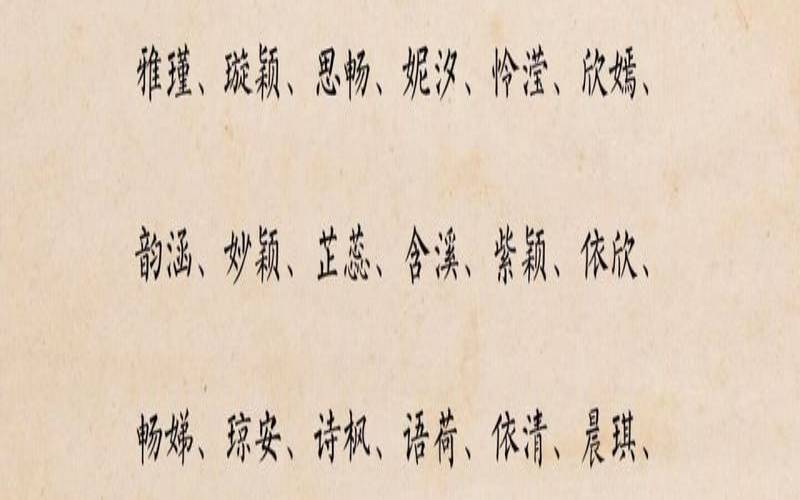 雅瑾、璇颖、思畅、妮汐、怜滢、欣嫣、
韵涵、妙颖、芷蕊、含溪、紫颖、依欣、
畅娣、琼安、诗枫、语荷、依清、晨琪、